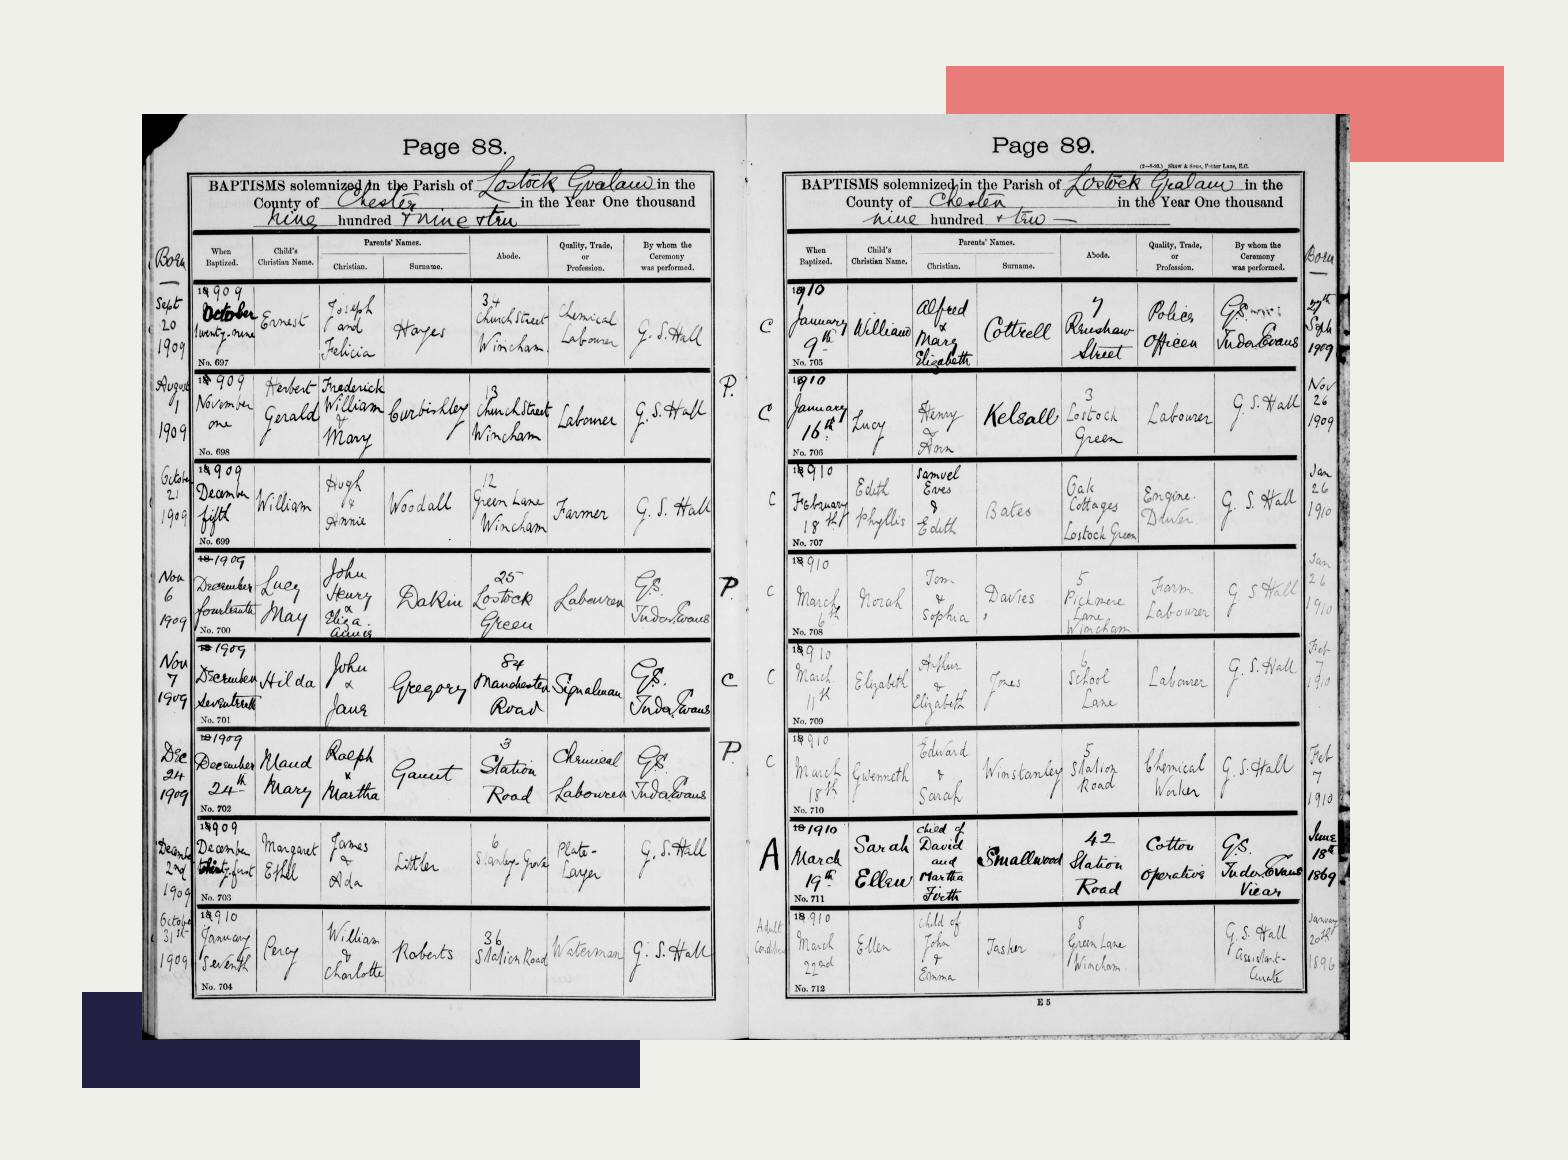 Page 88.
BAPTISMS solemnized in the Parish of Lostock Gralam in the
County of Chester in the Year One thousand
nine hundred & nine & ten
Born
When Baptized.
Child's Christian Name.
Parents' Names.
Christian.
Surname.
Abode.
Quality, Trade, or Profession.
By whom the Ceremony was performed.
Sept 20 1909
1909 October twenty-nine
No. 697
Ernest
Joseph and Felicia
Hayes
34 Church Street Wincham
Chemical Labourer
G. S. Hall
August 1 1909
1909 November one
No. 698
Herbert Gerald
Frederick William & Mary
Curbishley
13 Church Street Wincham
Labourer
G. S. Hall
P.
October 21 1909
1909 December fifth
No. 699
William
Hugh & Annie
Woodall
12 Green Lane Wincham
Farmer
G. S. Hall
Nov 6 1909
18 1909 December fourteenth
No. 700
Lucy May
John Henry & Eliza Annie
Dakin
25 Lostock Green
Labourer
G.S. Tudor Evans
P.
Nov 7 1909
18 1909 December seventeenth
No. 701
Hilda
John & Jane
Gregory
84 Manchester Road
Signalman
G.S. Tudor Evans
C
Dec 24 1909
18 1909 December 24th
No. 702
Maud Mary
Ralph & Martha
3 Station Road
Chemical Labourer
G.S. Tudor Evans
P.
December 2nd 1909
1909 December
No. 703
Margaret Ethel
James & Ada
Littler
6 Stanley Grove
Plate-Layer
G. S. Hall
October 31st 1909
1910 January Seventh
No. 704
Percy
William & Charlotte
Roberts
36 Station Road
Waterman
G. S. Hall
Page 89.
(2—8-93.) Shaw & Sons, Fetter Lane, E.C.
BAPTISMS solemnized in the Parish of Lostock Gralam in the
County of Chester in the Year One thousand
nine hundred & ten —
When Baptized.
Child's Christian Name.
Parents' Names.
Christian.
Surname.
Abode.
Quality, Trade, or Profession.
By whom the Ceremony was performed.
Born
C
1910 January 9th
No. 705
William
Alfred & Mary Elizabeth
Cottrell
7 Renshaw Street
Police Officer
G.S. Tudor Evans
27th Sept 1909
C
1910 January 16th
No. 706
Lucy
Henry & Ann
Kelsall
3 Lostock Green
Labourer
G. S. Hall
Nov 26 1909
C
1910 February 18th
No. 707
Edith Phyllis
Samuel Eves & Edith
Bates
Oak Cottages Lostock Green
Engine Driver
G. S. Hall
Jan 26 1910
C
1910 March 6th
No. 708
Norah
Tom & Sophia
Davies
5 Pickmere Lane Wincham
Farm Labourer
G. S. Hall
Jan 26 1910
C
1910 March 11th
No. 709
Elizabeth
Arthur & Elizabeth
Jones
6 School Lane
Labourer
G. S. Hall
Feb 7 1910
C
1910 March 18th
No. 710
Gwenneth
Edward & Sarah
Winstanley
5 Station Road
Chemical Worker
G. S. Hall
Feb 7 1910
A
18 1910 March 19th
No. 711
Sarah Ellen
child of David and Martha Firth
Smallwood
42 Station Road
Cotton Operative
G.S. Tudor Evans Vicar
June 18th 1869
Adult
1910 March 22nd
No. 712
Ellen
child of John & Emma
Tasker
8 Green Lane Wincham
G. S. Hall Assistant-Curate
January 20th 1896
E 5